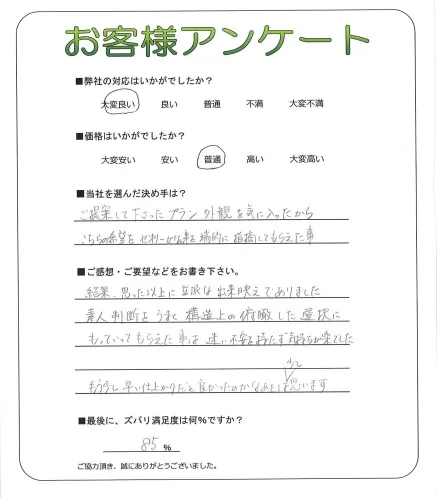 お客様アンケート
■弊社の対応はいかがでしたか？
大変良い 良い 普通 不満 大変不満
■価格はいかがでしたか？
大変安い 安い 普通 高い 大変高い
■当社を選んだ決め手は？
ご提案して下さったプラン外観を気に入ったから
こちらの希望を 出来を端的に指摘してもらえた事
■ご感想・ご要望などをお書き下さい。
結果、思った以上に立派な出来映えでありました
素人判断をうまく構造上の俯瞰した選択に
もっていってもらえた事は 迷い不安を持たず 気持ちが楽でした
少し
もう少し早い仕上がりだと良かったのかなぁとは思います
■最後に、ズバリ満足度は何％ですか？
85％
ご協力頂き、誠にありがとうございました。